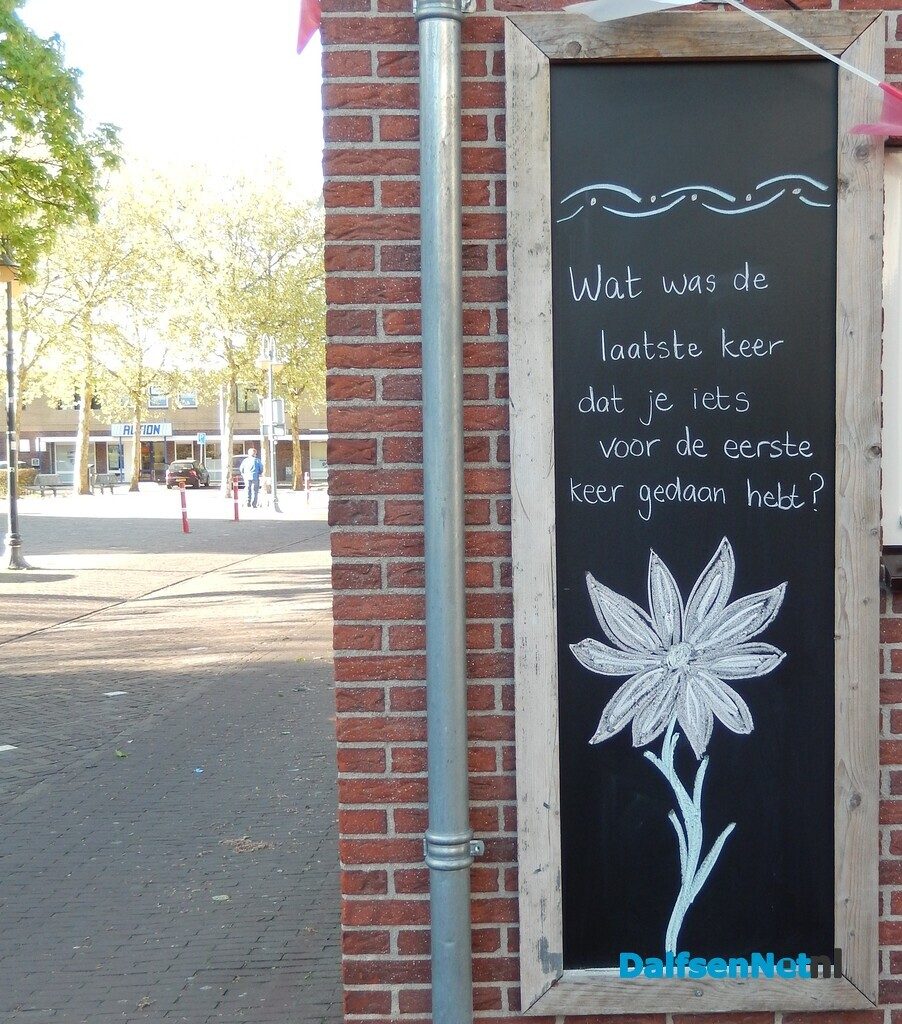 Wat was de
laatste keer
dat je iets
voor de eerste
keer gedaan hebt?
ACTION
DalfsenNet.nl